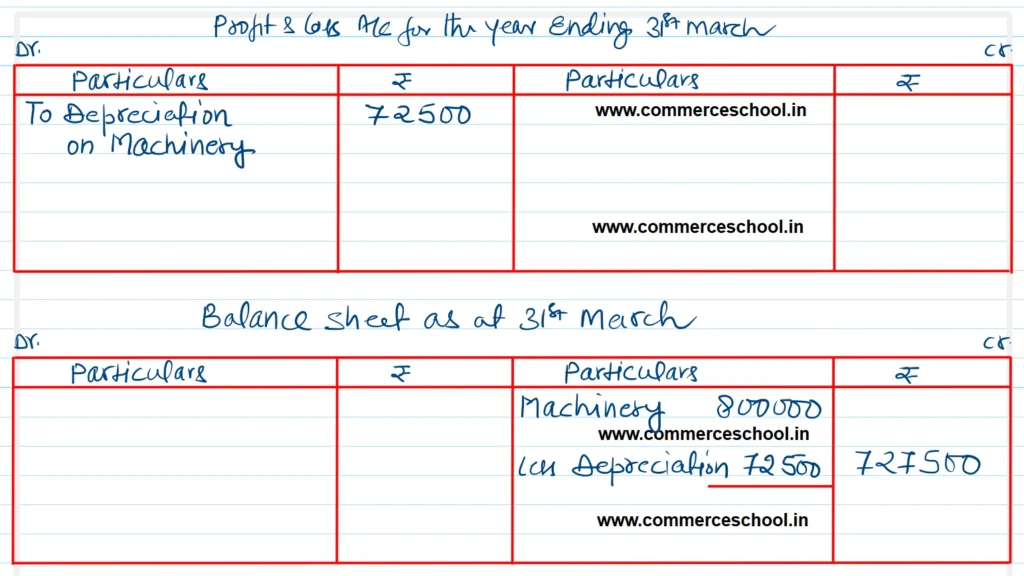 Profit & Loss A/c for the year Ending 31st march
Dr. Cr.
Particulars ₹ Particulars ₹
To Depreciation 72500 www.commerceschool.in
on Machinery
www.commerceschool.in
Balance sheet as at 31st March
Dr. Cr.
Particulars ₹ Particulars ₹
Machinery 800000
www.commerceschool.in
Less Depreciation 72500 727500
www.commerceschool.in